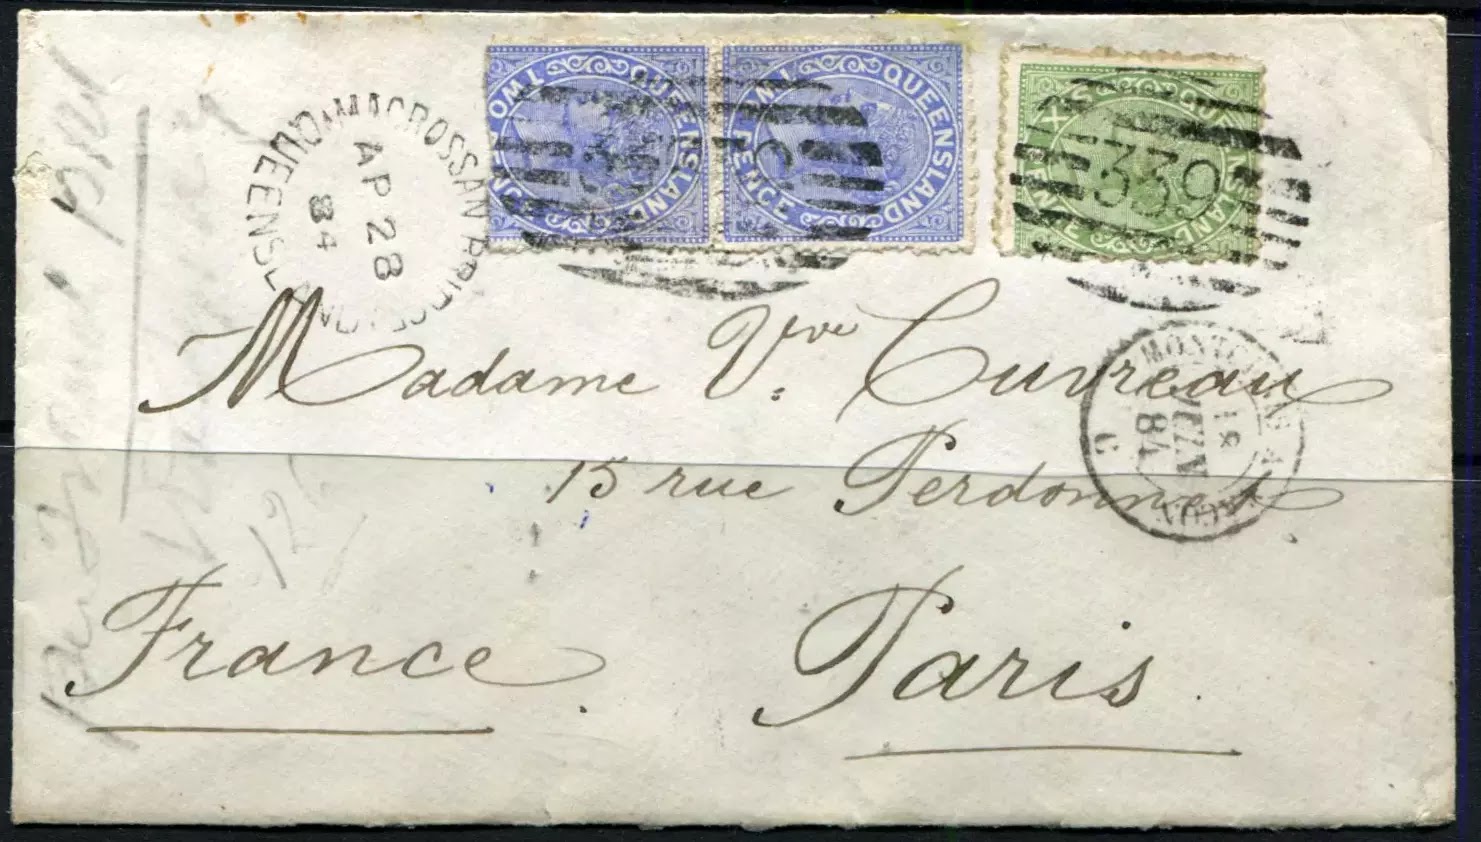 QUEENSLAND TWO PENCE
QUEENSLAND TWO PENCE
QUEENSLAND SIX PENCE
339
MACROSSAN BRIDGE
AP 28
84
QUEENSLAND
Madame Vve. Cuvreau
15 rue Perdonnet
France. Paris.
18
84